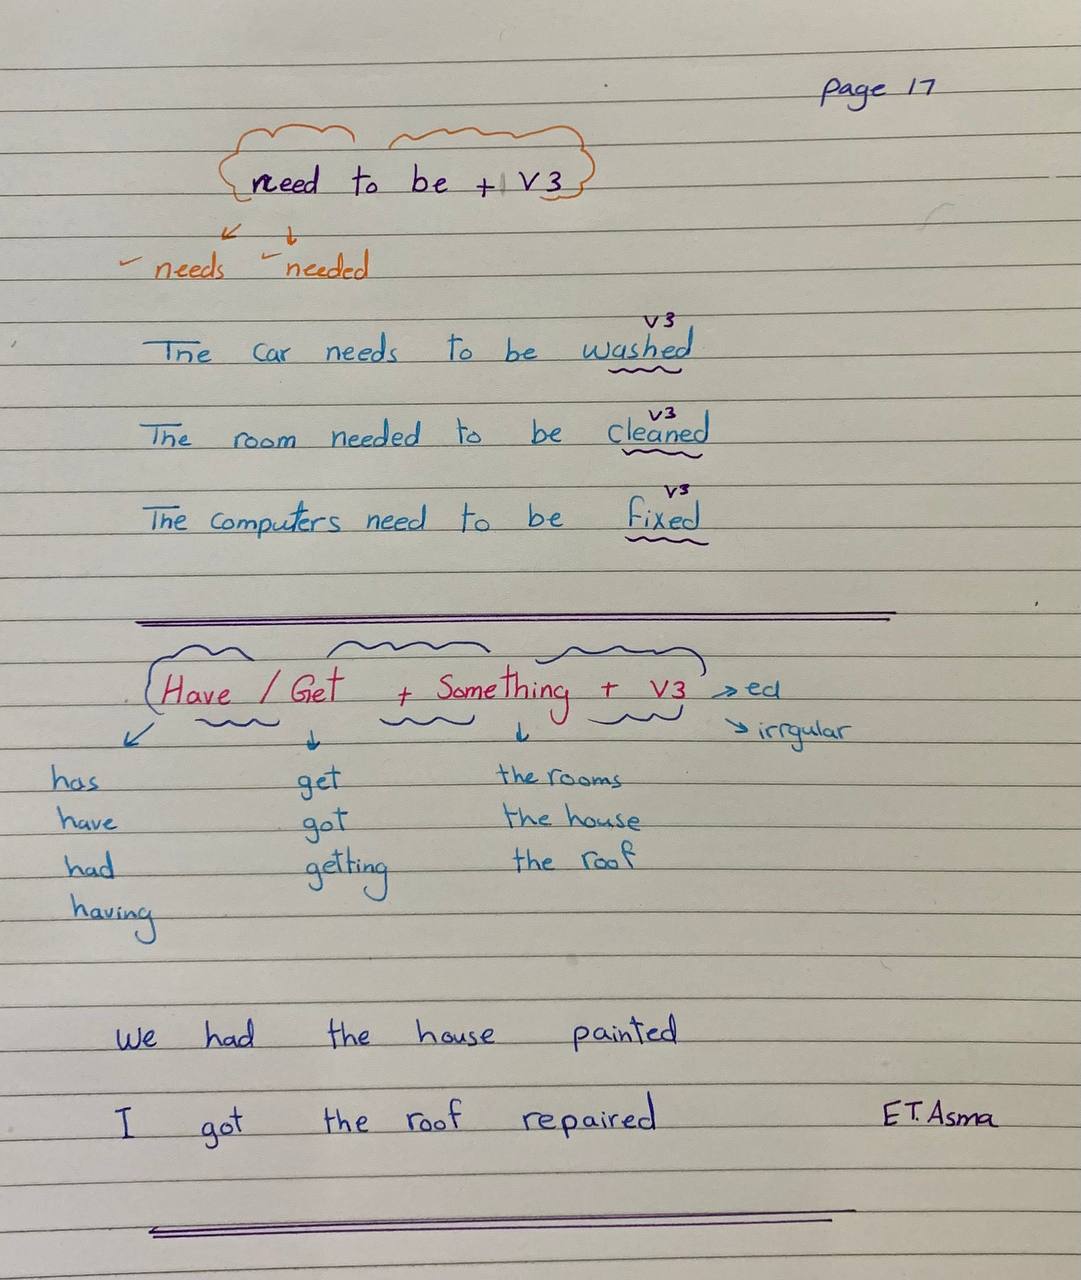 page 17
need to be + V3
needs needed
V3
The car needs to be washed
V3
The room needed to be cleaned
V3
The computers need to be fixed
Have / Get + Something + V3 → ed
irrgular
has get the rooms
have got the house
had getting the roof
having
We had the house painted
I got the roof repaired
E T. Asma